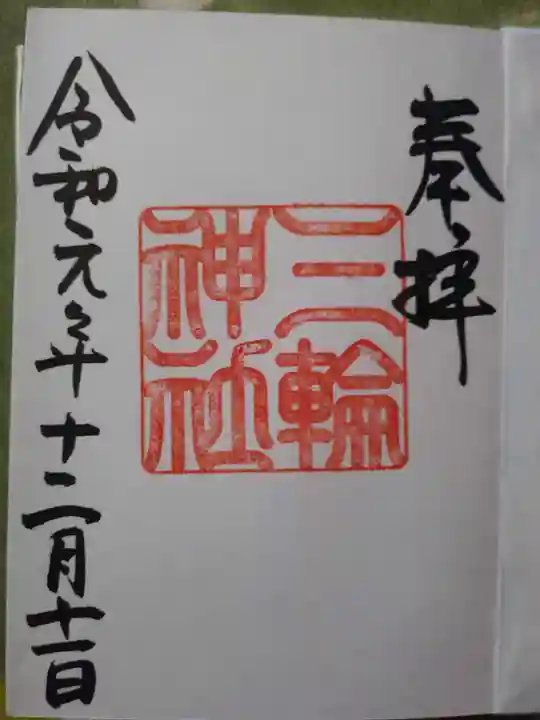 奉拝
三輪
神社
令和元年十二月十一日